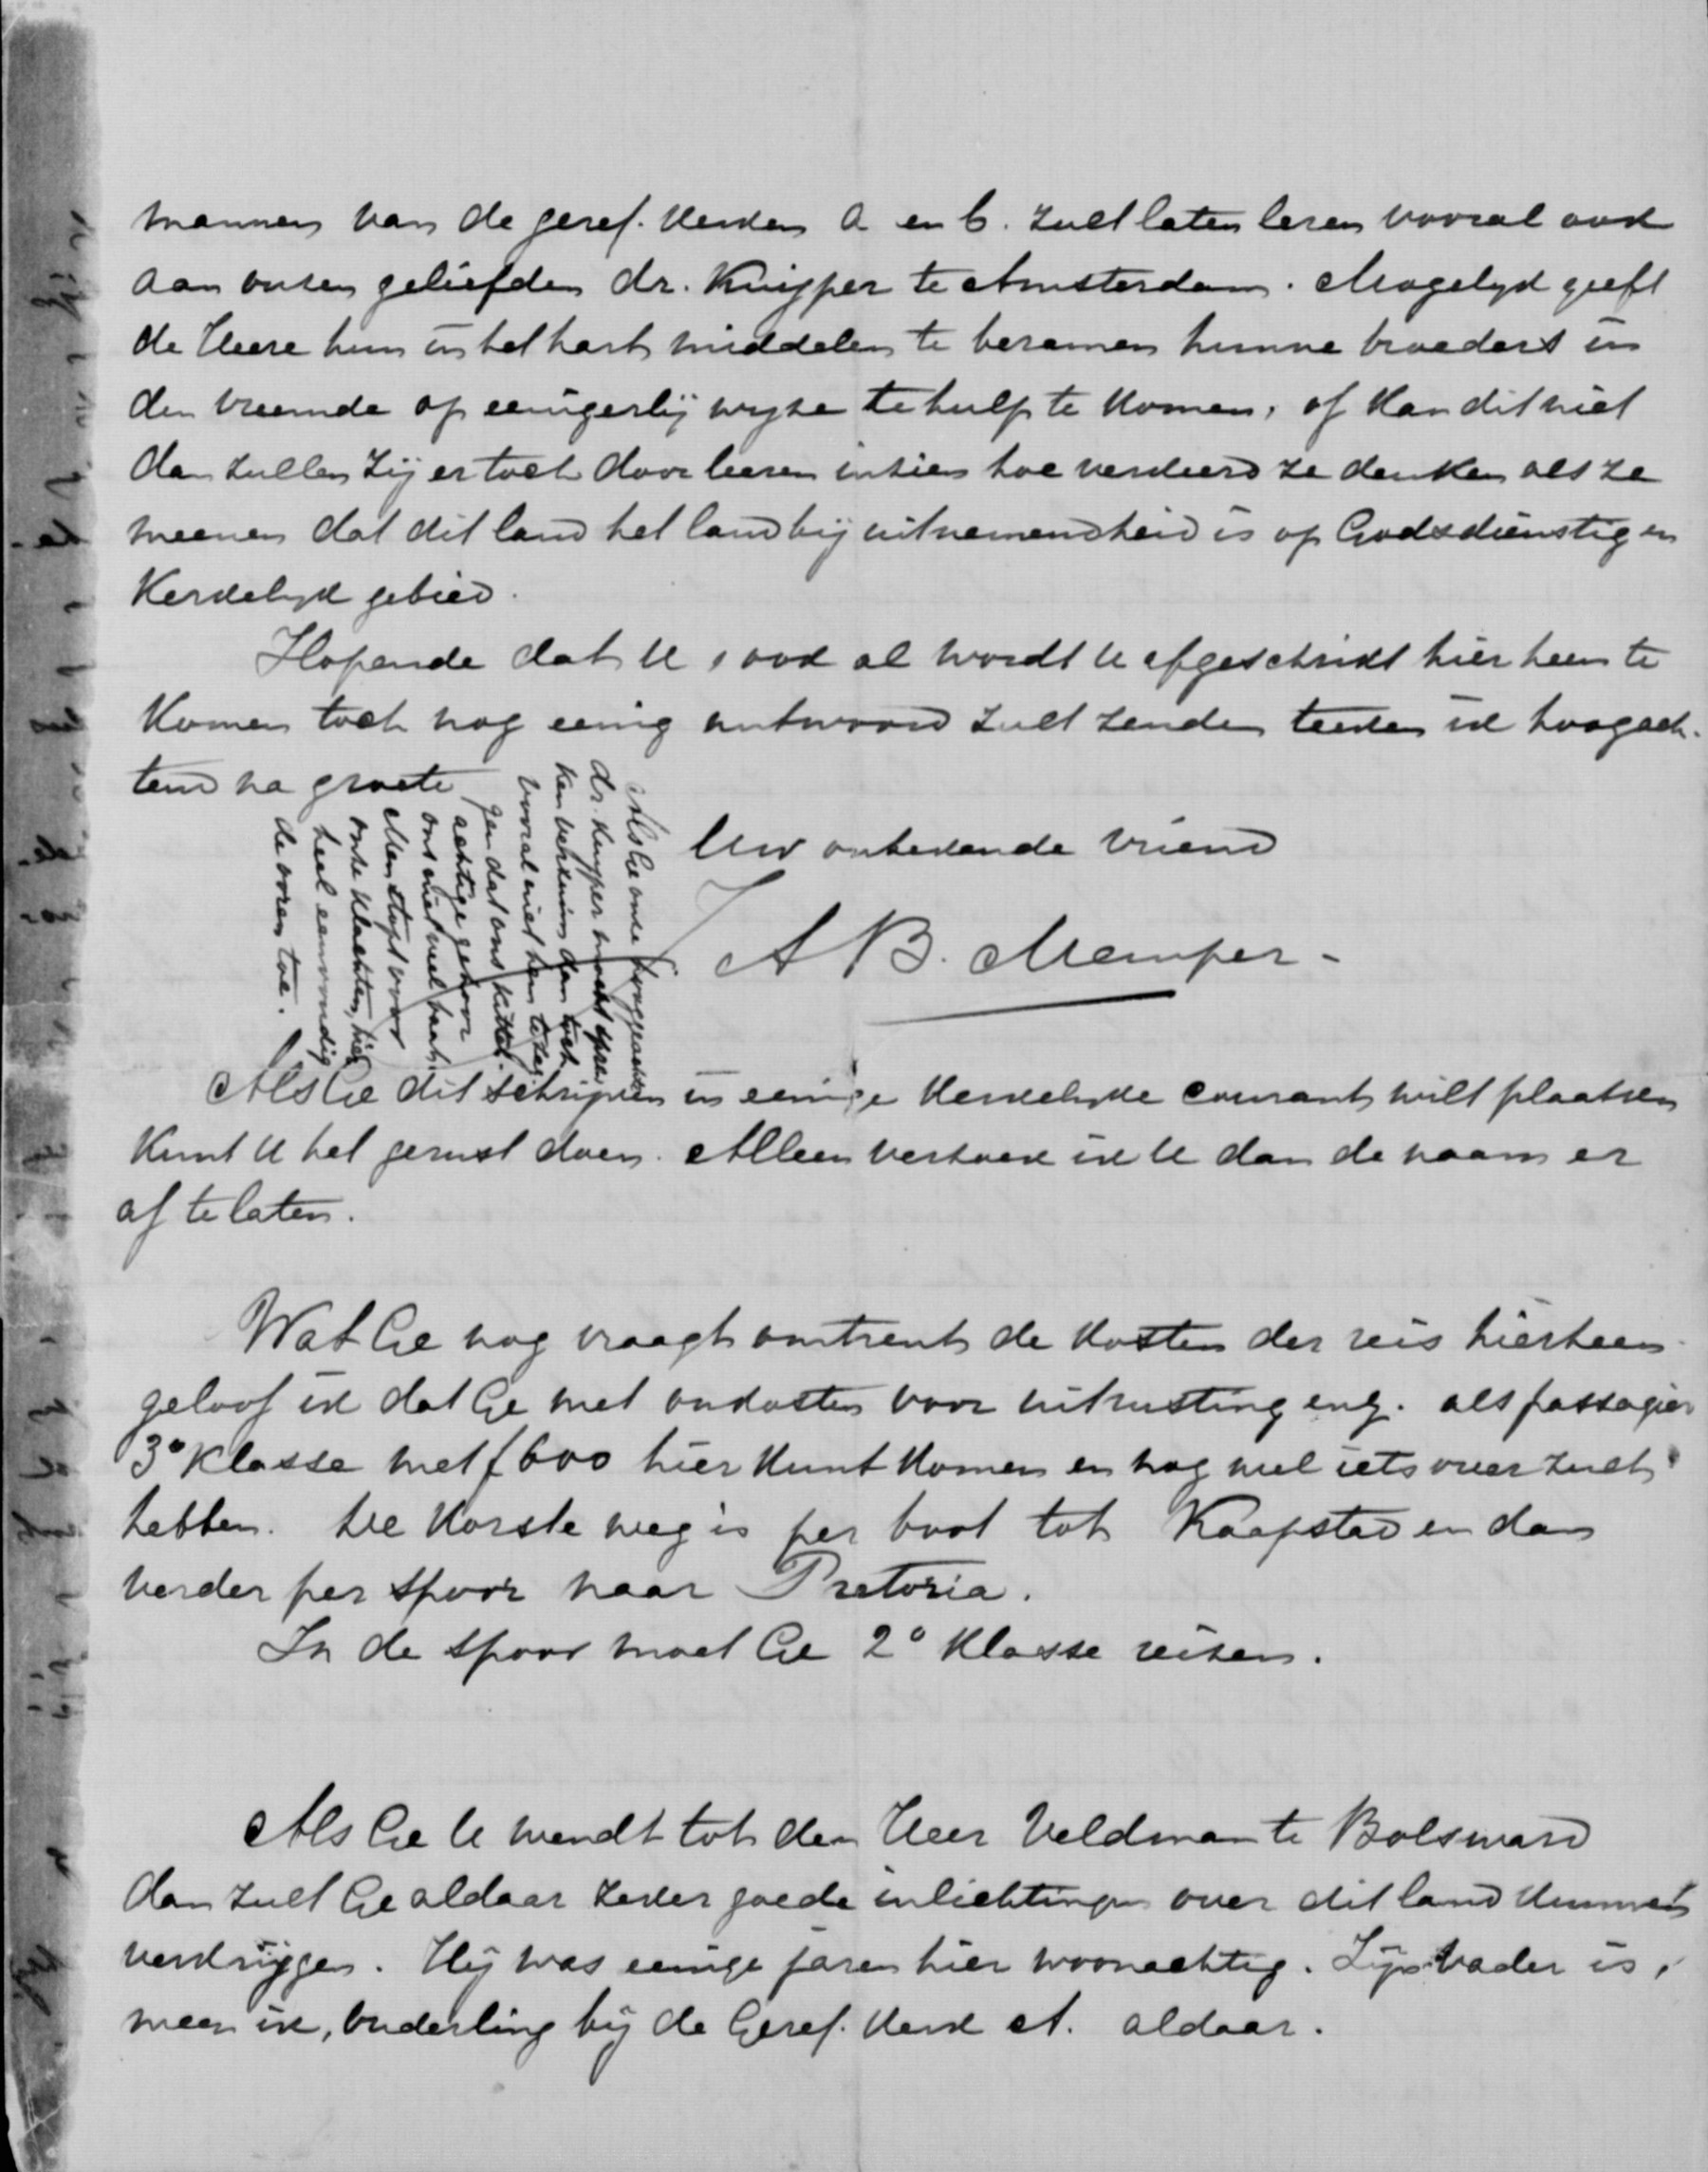 mannen van de geref. kerken A en B. zult laten lezen vooral ook
aan onzen geliefden dr. Kuijper te Amsterdam. Mogelyk geeft
de Heere hun in het hart middelen te beramen hunne broeders in
den vreemde op eenigerlij wyze te hulp te komen, of kan dit niet
dan zullen zij er toch door leeren inzien hoe verkeerd ze denken als ze
meenen dat dit land het land bij uitnemendheid is op Godsdienstig en
Kerkelyk gebied.
Hopende dat U, ook al wordt U afgeschrikt hierheen te
komen toch nog eenig antwoord zult zenden teeken ik hoogach-
tend na groete
Uw onbekende vriend
A B. Kemper -
Als Ge onze hooggeachte
dr. Kuyper mocht spre
ken verzuim dan toch
vooral niet hem te zeg
gen dat ons
achtige gehoor
ons niet veel baat.
Men stopt voor
onze klachten, hier
heel eenvoudig
de ooren toe.
Als Ge dit schrijven in eenige kerkelyke courant wilt plaatsen
kunt U het gerust doen. Alleen verzoek ik U dan de naam er
af te laten.
Wat Ge nog vraagt omtrent de kosten der reis hierheen
geloof ik dat Ge met onkosten voor uitrusting enz. als passagier
3e Klasse met f 600 hier kunt komen en nog wel iets over zult
hebben. De korste weg is per boot tot Kaapstad en dan
verder per spoor naar Pretoria.
In de spoor moet Ge 2e klasse reizen.
Als Ge U wendt tot den Heer Veldman te Bolsward
dan zult Ge aldaar zeker goede inlichtingen over dit land kunnen
verkrijgen. Hij was eenige jaren hier woonachtig. Zijn vader is,
meen ik, ouderling bij de Geref. kerk A. aldaar.